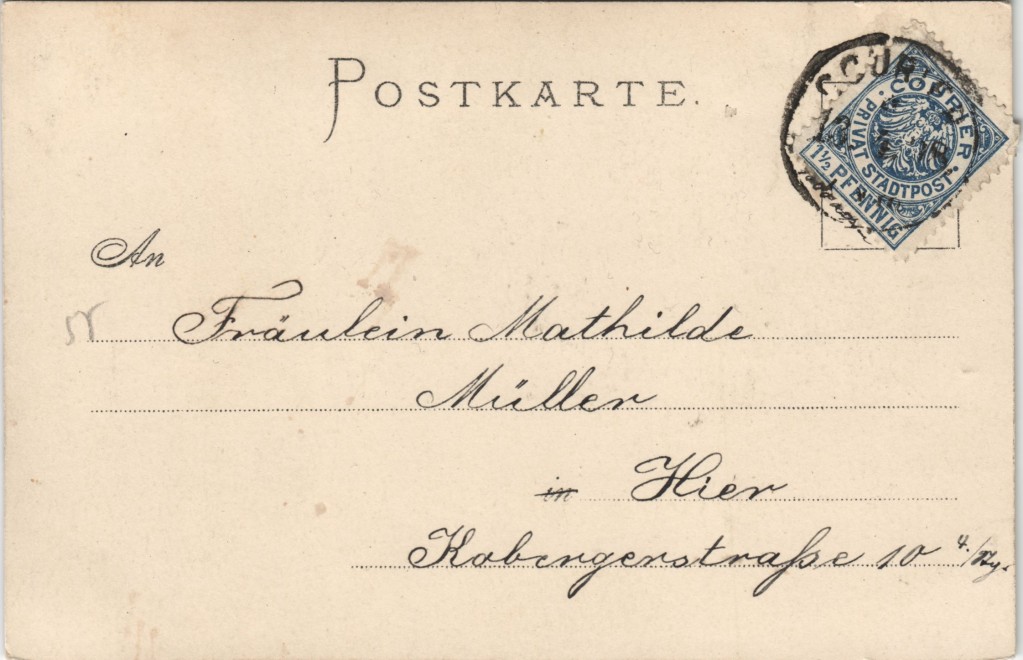 POSTKARTE.
COURIER
COURIER
PRIVAT STADTPOST.
1½ PFENNIG
An
Fräulein Mathilde
Müller
in Hier
Kobergerstraße 10 4./